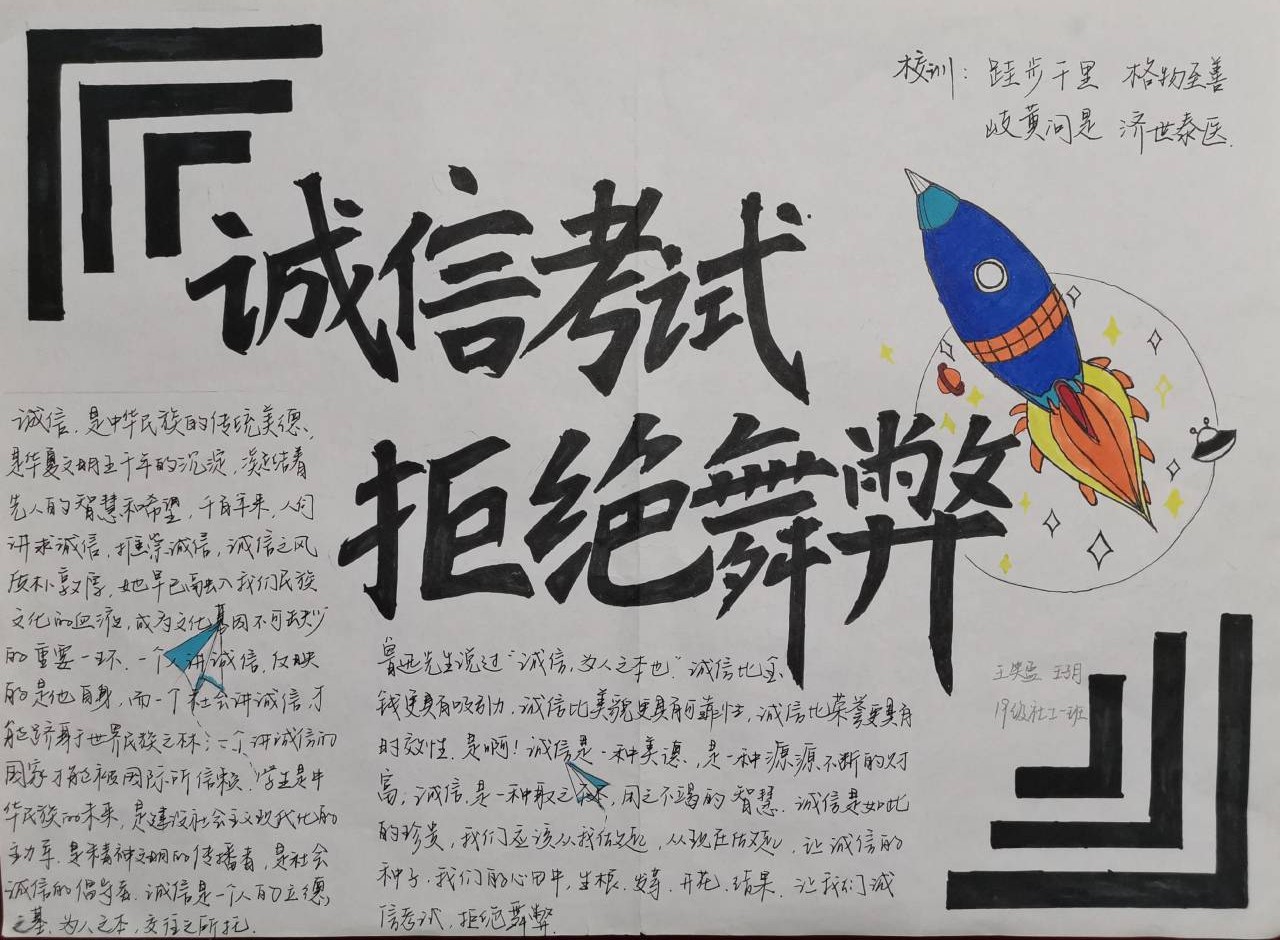 校训：跬步千里 格物至善
岐黄问是 济世泰医.
诚信考试
拒绝舞弊
诚信，是中华民族的传统美德，
是华夏文明五千年的沉淀，凝结着
先人的智慧和希望，千百年来，人们
讲求诚信，推崇诚信，诚信之风
质朴敦厚，她早已融入我们民族
文化的血液，成为文化基因不可缺少
的重要一环.一个人讲诚信，反映
的是他自身，而一个社会讲诚信，才
能跻身于世界民族之林；一个讲诚信的
国家才能被国际所信赖.学生是中
华民族的未来，是建设社会主义现代化的
主力军.是精神文明的传播者，是社会
诚信的倡导者.诚信是一个人的立德
之基，为人之本，交往之所托.
鲁迅先生说过“诚信，为人之本也”诚信比金
钱更具有吸引力，诚信比美貌更具有可靠性，诚信比荣誉更具有
时效性.是啊！诚信是一种美德，是一种源源不断的财
富，诚信，是一种取之不尽，用之不竭的智慧.诚信是如此
的珍贵，我们应该从我做起，从现在做起，让诚信的
种子，我们的心田中，生根、发芽、开花、结果.让我们诚
信考试，拒绝舞弊.
19级社工一班